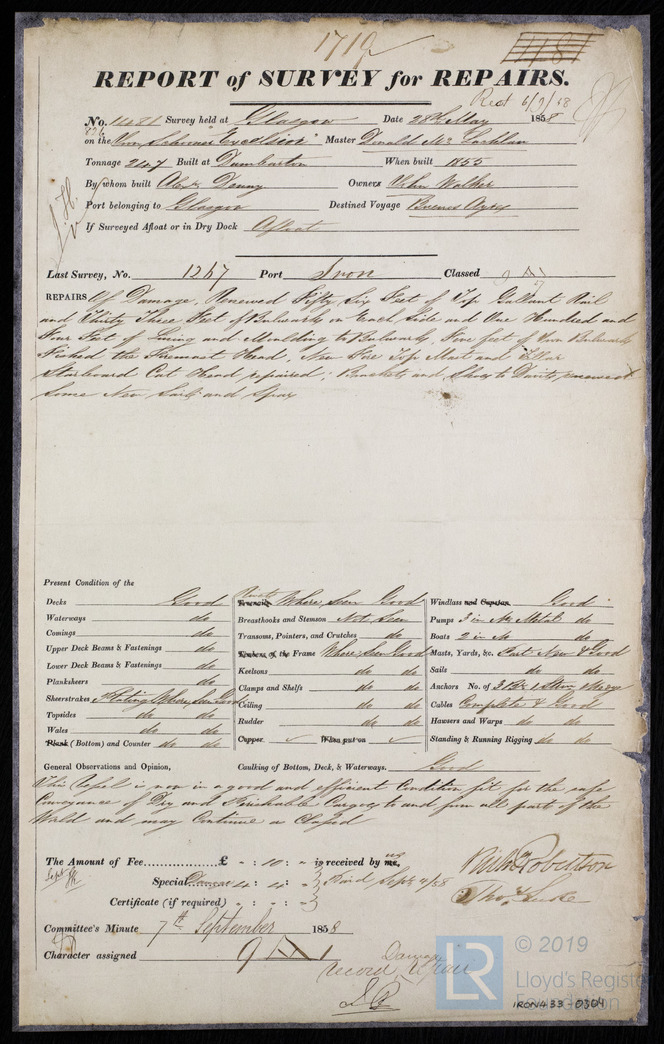 1719
1481
REPORT of SURVEY for REPAIRS.
Recd 6/9/58
No. 11481 Survey held at Glasgow Date 28th May 1858
on the Iron Schooner "Excelsior" Master Donald Mc Lachlan
Tonnage 247 Built at Dumbarton When built 1855
By whom built Alexr Denny Owners John Walker
Port belonging to Glasgow Destined Voyage Buenos Ayres
If Surveyed Afloat or in Dry Dock Afloat
Last Survey, No. 1267 Port Iron Classed 9 A1
REPAIRS Of Damage, Renewed Fifty Six Feet of Top Gallant Rail
and Thirty Three Feet of Bulwarks on Each Side and One Hundred and
Four Feet of Lining and Moulding to Bulwarks, Nine feet of Iron Bulwark
the Foremast Head, New Fore Top Mast and
Starboard Cat Head repaired; Brackets and Shoes to Davits, renewed
Some New Sails and Spars
Present Condition of the
Decks Good
Waterways do
Comings do
Upper Deck Beams & Fastenings do
Lower Deck Beams & Fastenings do
Planksheers do
Sheerstrakes Plating Where Seen Good
Topsides do do
Wales do do
Plank (Bottom) and Counter do do
Rivets Treenails Where Seen Good
Breasthooks and Stemson Not Seen
Transoms, Pointers, and Crutches do
Timbers of the Frame Where Seen Good
Keelsons do do
Clamps and Shelfs do do
Ceiling do do
Rudder do do
Copper ✓ When put on ✓
Windlass and Capstan Good
Pumps 3 in No Metal do
Boats 2 in No do
Masts, Yards, &c. Part New & Good
Sails do do
Anchors No. of 3 Br 1 Strm
Cables Complete & Good
Hawsers and Warps do do
Standing & Running Rigging do do
General Observations and Opinion, Caulking of Bottom, Deck, & Waterways. Good
This Vessel is now in a good and efficient Condition fit for the safe
Conveyance of Dry and Perishable Cargoes to and from all parts of the
World and may Continue as Classed
The Amount of Fee............... £ " : 10 : " is received by me, us
Special Damage 4 : 4 : " Paid Sept 4/58
Certificate (if required) " : " : "
Robertson
Thos Luke
Committee's Minute 7th September 1858
Character assigned 9 A 1
Damage
Record, Repair
© 2019
LR
Lloyd's Register
Foundation
IRON433-0304